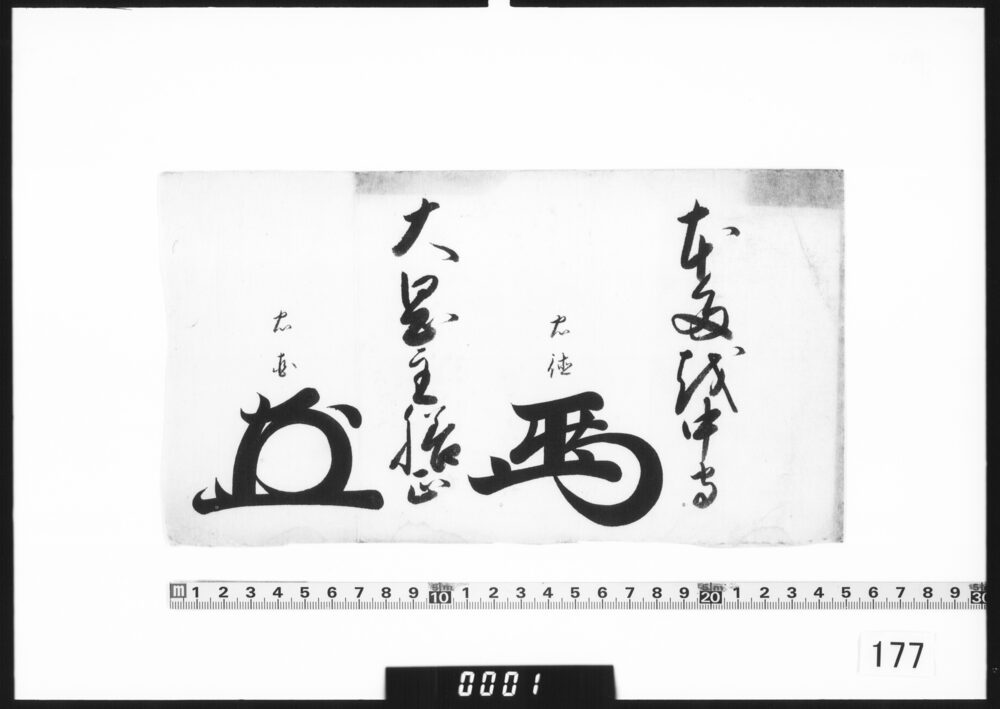 本多越中守
忠徳
大岡主膳正
忠固
m 1 2 3 4 5 6 7 8 9 10 1 2 3 4 5 6 7 8 9 20 1 2 3 4 5 6 7 8 9 30
177
0001